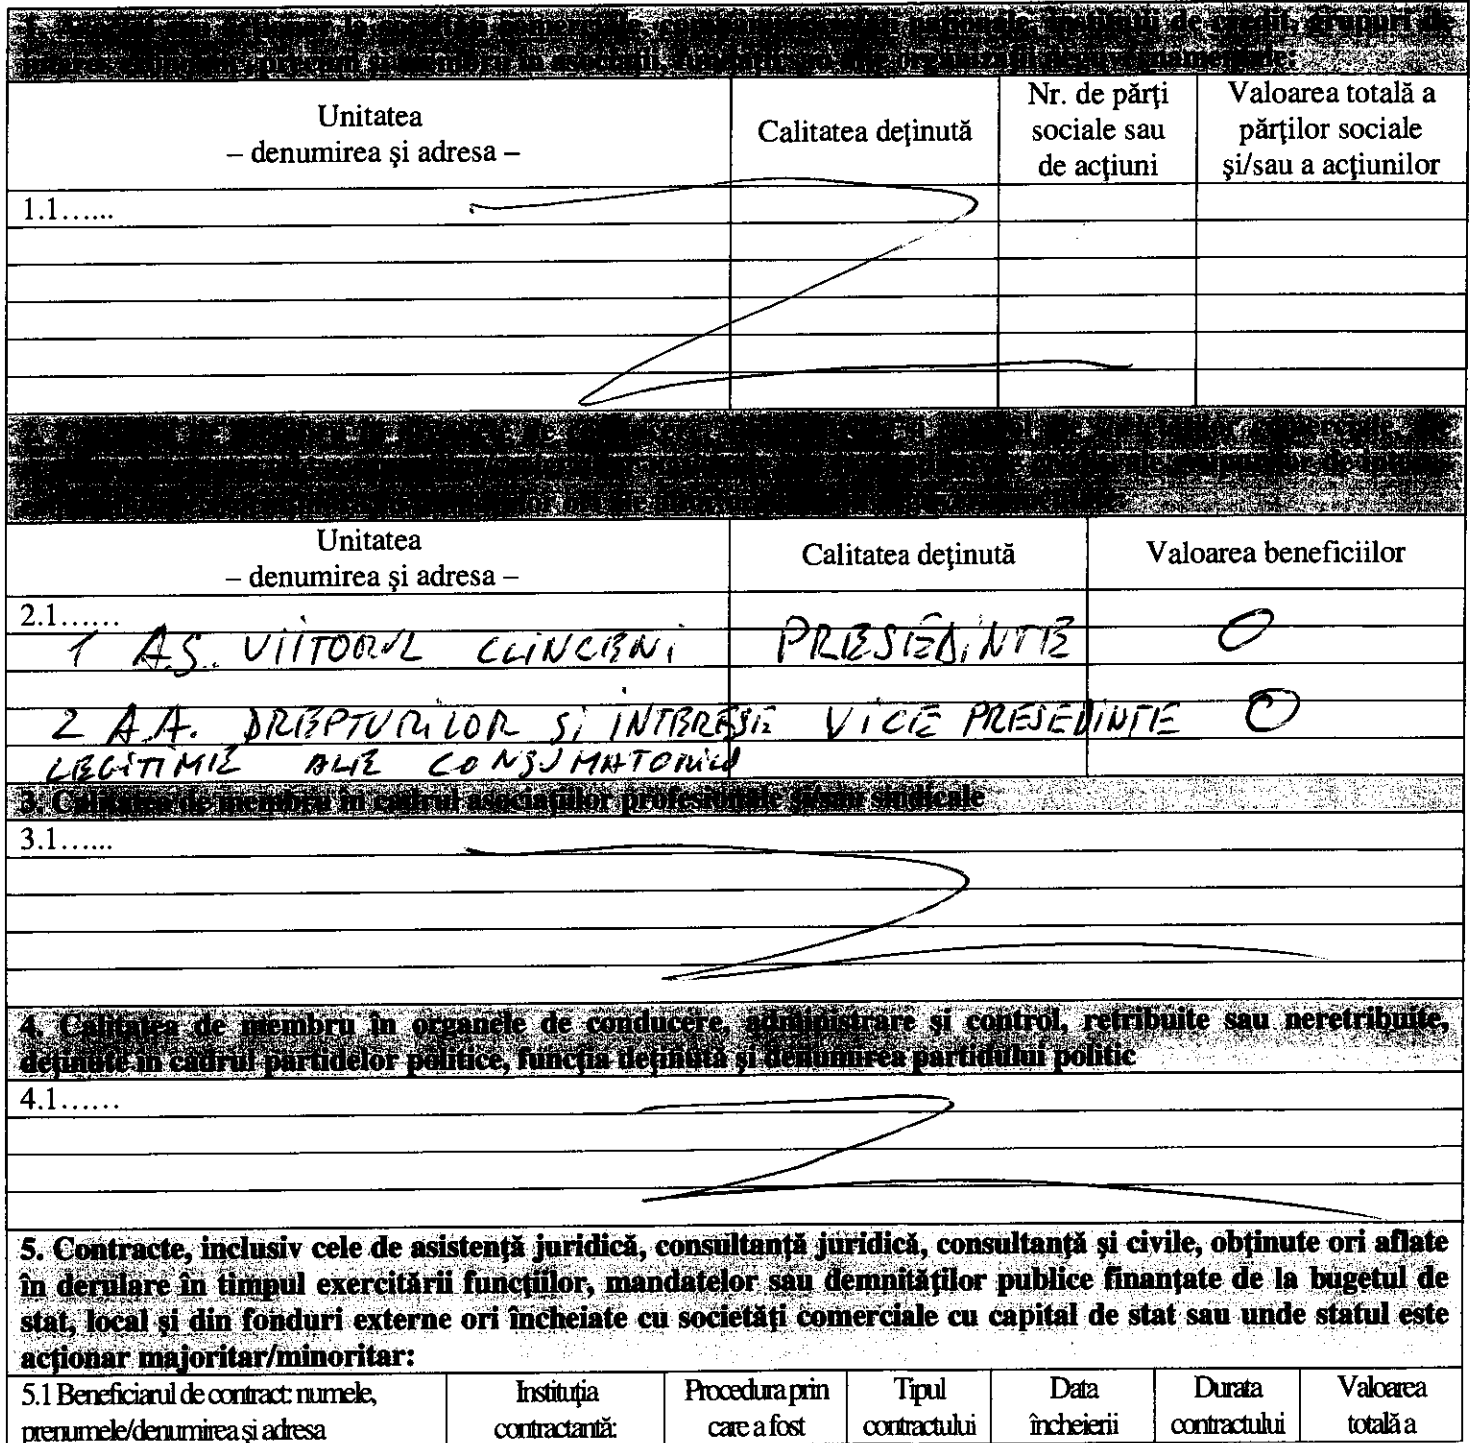 interes economic, precum şi membru în asociaţii, fundaţii sau alte organizaţii neguvernamentale:
Unitatea
– denumirea şi adresa –
Calitatea deţinută
Nr. de părţi
sociale sau
de acţiuni
Valoarea totală a
părţilor sociale
şi/sau a acţiunilor
1.1......
Unitatea
– denumirea şi adresa –
Calitatea deţinută
Valoarea beneficiilor
2.1......
1 A.S. VIITORUL CLINCENI PRESEDINTE 0
2 A.A. DREPTURILOR SI INTERESE VICE PRESEDINTE 0
LEGITIME ALE CONSUMATORILO
3. Calitatea de membru în cadrul asociaţiilor profesionale şi/sau sindicale
3.1......
4. Calitatea de membru în organele de conducere, administrare şi control, retribuite sau neretribuite,
deţinute în cadrul partidelor politice, funcţia deţinută şi denumirea partidului politic
4.1......
5. Contracte, inclusiv cele de asistenţă juridică, consultanţă juridică, consultanţă şi civile, obţinute ori aflate
în derulare în timpul exercitării funcţiilor, mandatelor sau demnităţilor publice finanţate de la bugetul de
stat, local şi din fonduri externe ori încheiate cu societăţi comerciale cu capital de stat sau unde statul este
acţionar majoritar/minoritar:
5.1 Beneficiarul de contract: numele,
prenumele/denumirea şi adresa
Instituţia
contractantă:
Procedura prin
care a fost
Tipul
contractului
Data
încheierii
Durata
contractului
Valoarea
totală a